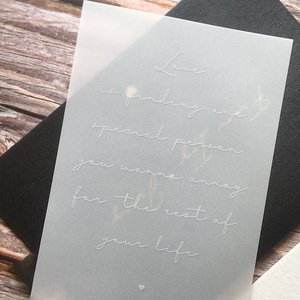 Love
is finding one
special person
you wanna annoy
for the rest of
your life